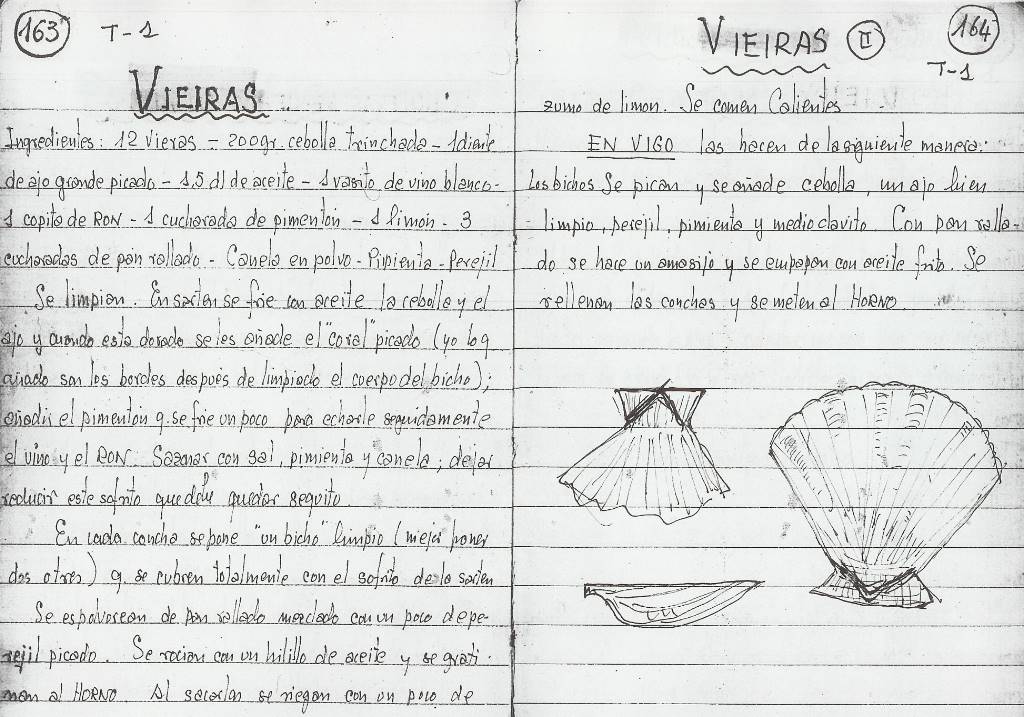 163
T-1
VIEIRAS
Ingredientes: 12 Vieras - 200 gr. cebolla trinchada - 1 diente
de ajo grande picado - 1,5 dl de aceite - 1 vasito de vino blanco -
1 copita de RON - 1 cucharada de pimentón - 1 limón - 3
cucharadas de pan rallado - Canela en polvo - Pipienta - Perejil
Se limpian. En sarten se frie con aceite la cebolla y el
ajo y cuando esta dorado se les añade el "coral" picado (yo lo q
añado son los bordes después de limpiado el cuerpo del bicho);
añadir el pimentón q. se frie un poco para echarle seguidamente
el vino y el RON. Sazonar con sal, pimienta y canela; dejar
reducir este sofrito que debe quedar seguito.
En cada concha se pone "un bicho" limpio (mejor poner
dos o tres) q. se cubren totalmente con el sofrito de la sarten
Se espolvorean de pan rallado mezclado con un poco de pe-
rejil picado. Se rocian con un hilillo de aceite y se grati-
nan al HORNO. Al sacarlas se riegan con un poco de
164
T-1
VIEIRAS II
zumo de limon. Se comen Calientes.
EN VIGO las hacen de la siguiente manera:
Los bichos Se pican y se añade cebolla, un ajo bien
limpio, perejil, pimienta y medio clavito. Con pan ralla-
do se hace un amasijo y se empapan con aceite frito. Se
rellenan las conchas y se meten al HORNO.